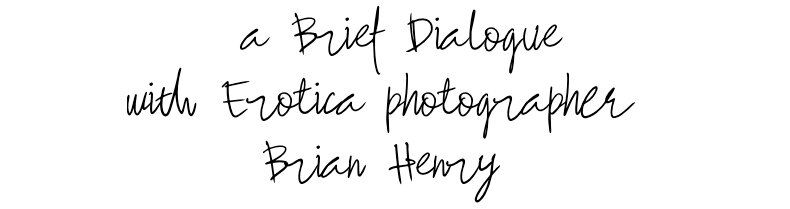 a Brief Dialogue
with Erotica photographer
Brian Henry